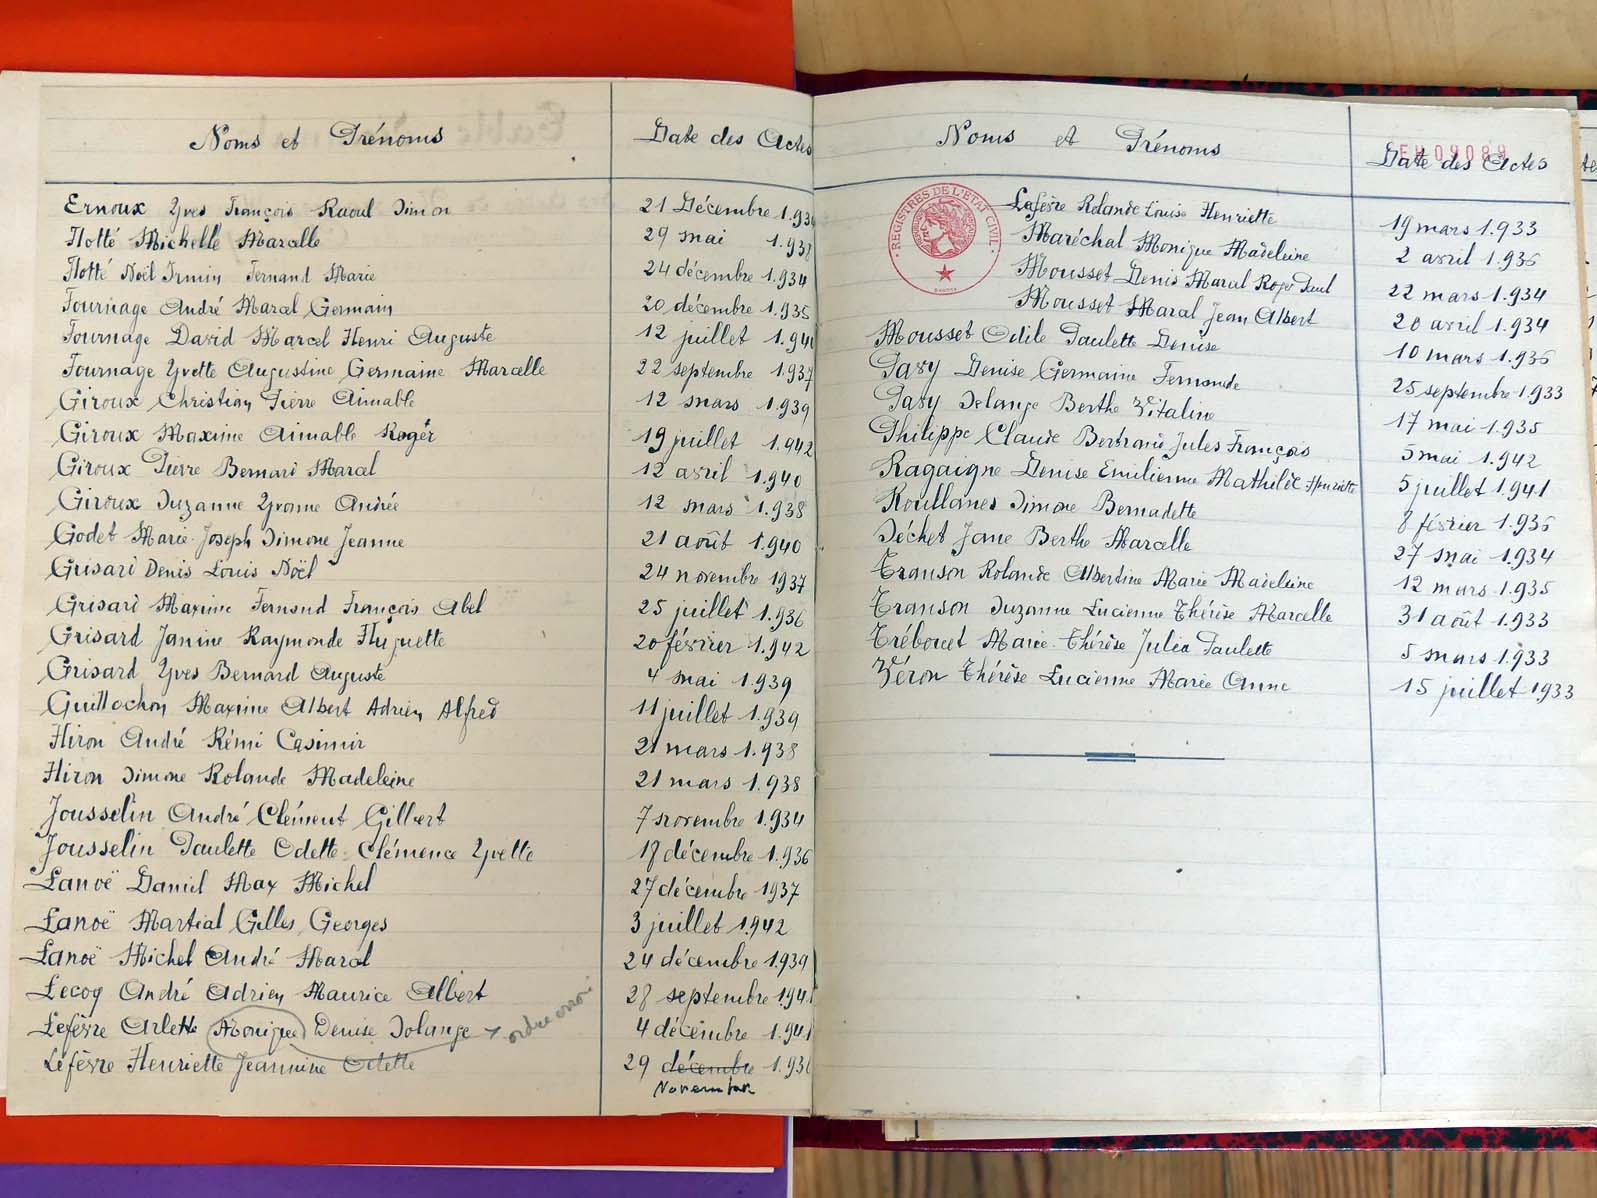 Noms et Prénoms Date des Actes
Ernoux Yves François Raoul Simon 21 Décembre
Flotté Michelle Marcelle 29 mai 1.938
Flotté Noël Firmin Fernand Marie 24 décembre 1.934
Fournage André Marcel Germain 20 décembre 1.935
Fournage David Marcel Henri Auguste 12 juillet
Fournage Yvette Augustine Germaine Marcelle 22 septembre 1.937
Giroux Christian Pierre Aimable 12 mars 1.939
Giroux Maxime Aimable Roger 19 juillet 1.942
Giroux Pierre Bernard Marcel 12 avril 1.940
Giroux Suzanne Yvonne Andrée 12 mars 1.938
Godet Marie-Joseph Simone Jeanne 21 août 1.940
Grisard Denis Louis Noël 24 novembre 1937
Grisard Maxime Fernand François Abel 25 juillet 1.936
Grisard Janine Raymonde Huguette 20 février 1.942
Grisard Yves Bernard Auguste 4 mai 1.939
Guillochon Maxime Albert Adrien Alfred 11 juillet 1.939
Hiron André Rémi Casimir 21 mars 1.938
Hiron Simone Rolande Madeleine 21 mars 1.938
Jousselin André Clément Gilbert 7 novembre 1.934
Jousselin Paulette Odette Clémence Yvette 18 décembre 1.936
Lanoë Daniel Max Michel 27 décembre 1937
Lanoë Martial Gilles Georges 3 juillet 1.942
Lanoë Michel André Marcel 24 décembre 1.939
Lecoq André Adrien Maurice Albert 28 septembre 1.941
Lefèvre Arlette Monique Denise Solange ordre erroné 4 décembre 1.941
Lefèvre Henriette Jeannine Odette 29 décembre
Novembre
Noms et Prénoms Date des Actes
09089
REGISTRES DE L'ETAT CIVIL
Lefèvre Rolande Louise Henriette 19 mars 1.933
Maréchal Monique Madeleine 2 avril 1.936
Mousset Denis Marcel Roger Paul 22 mars 1.934
Mousset Marcel Jean Albert 20 avril 1.934
Mousset Odile Paulette Denise 10 mars 1.936
Pavy Denise Germaine Fernande 25 septembre 1.933
Pavy Solange Berthe Vitaline 17 mai 1.935
Philippe Claude Bertrand Jules François 5 mai 1.942
Ragaigne Denise Emilienne Mathilde Henriette 5 juillet 1.941
Simone Bernadette 8 février 1.936
Séchet Jane Berthe Marcelle 27 mai 1.934
Transon Rolande Albertine Marie Madeleine 12 mars 1.935
Transon Suzanne Lucienne Thérèse Marcelle 31 août 1.933
Trébouet Marie-Thérèse Julia Paulette 5 mars 1.933
Véron Thérèse Lucienne Marie Anne 15 juillet 1933